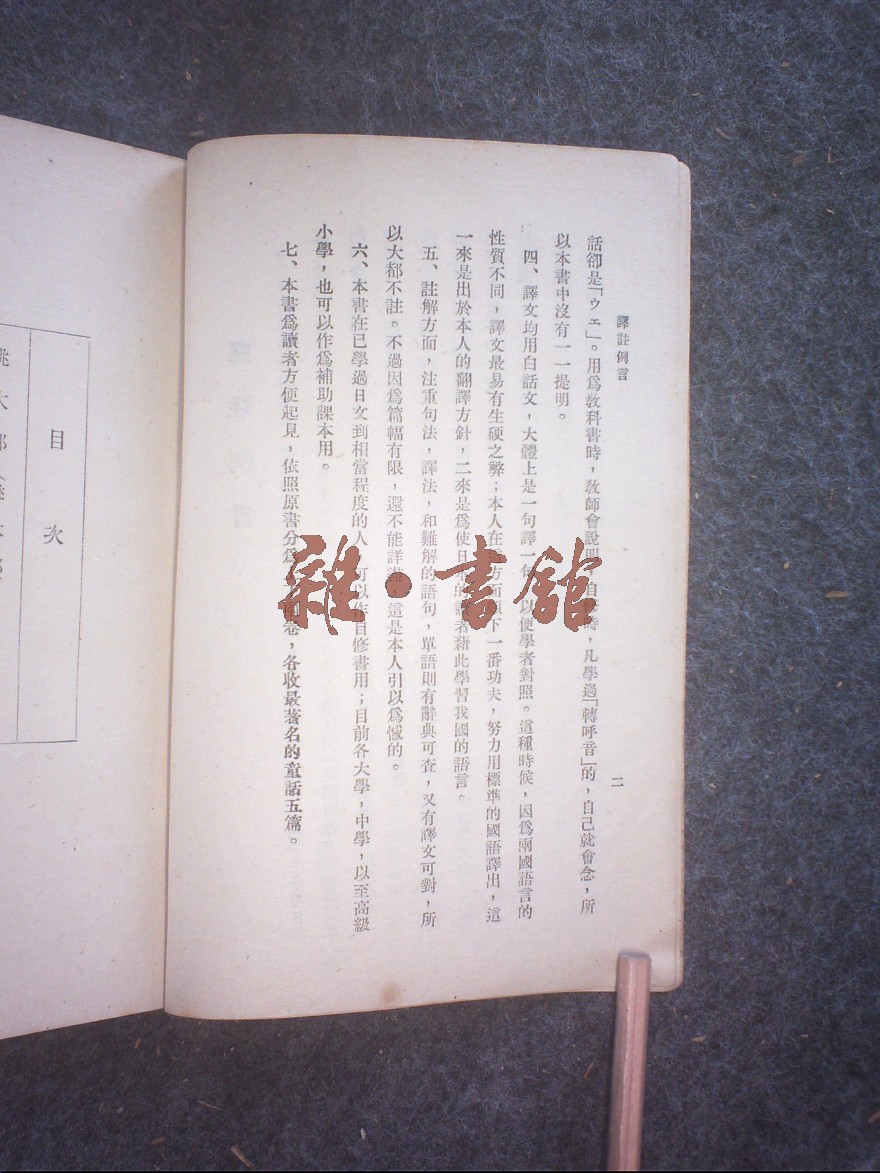 譯註例言
二
話卻是「ウェ」。用爲敎科書時，敎師會說明，自修時，凡學過「轉呼音」的，自己就會念，所
以本書中沒有一一提明。
四、譯文均用白話文，大體上是一句譯一句，以便學者對照。這種時候，因爲兩國語言的
性質不同，譯文最易有生硬之弊；本人在方面下一番功夫，努力用標準的國語譯出，這
一來是出於本人的翻譯方針，二來是爲使日的讀者藉此學習我國的語言。
五、註解方面，注重句法，譯法，和難解的語句，單語則有辭典可査，又有譯文可對，所
以大都不註。不過因爲篇幅有限，還不能詳盡。這是本人引以爲憾的。
六、本書在已學過日文到相當程度的人，可以作自修書用；目前各大學，中學，以至高級
小學，也可以作爲補助課本用。
七、本書爲讀者方便起見，依照原書分爲卷，各收最著名的童話五篇。
目次
桃太郎
雜·書館